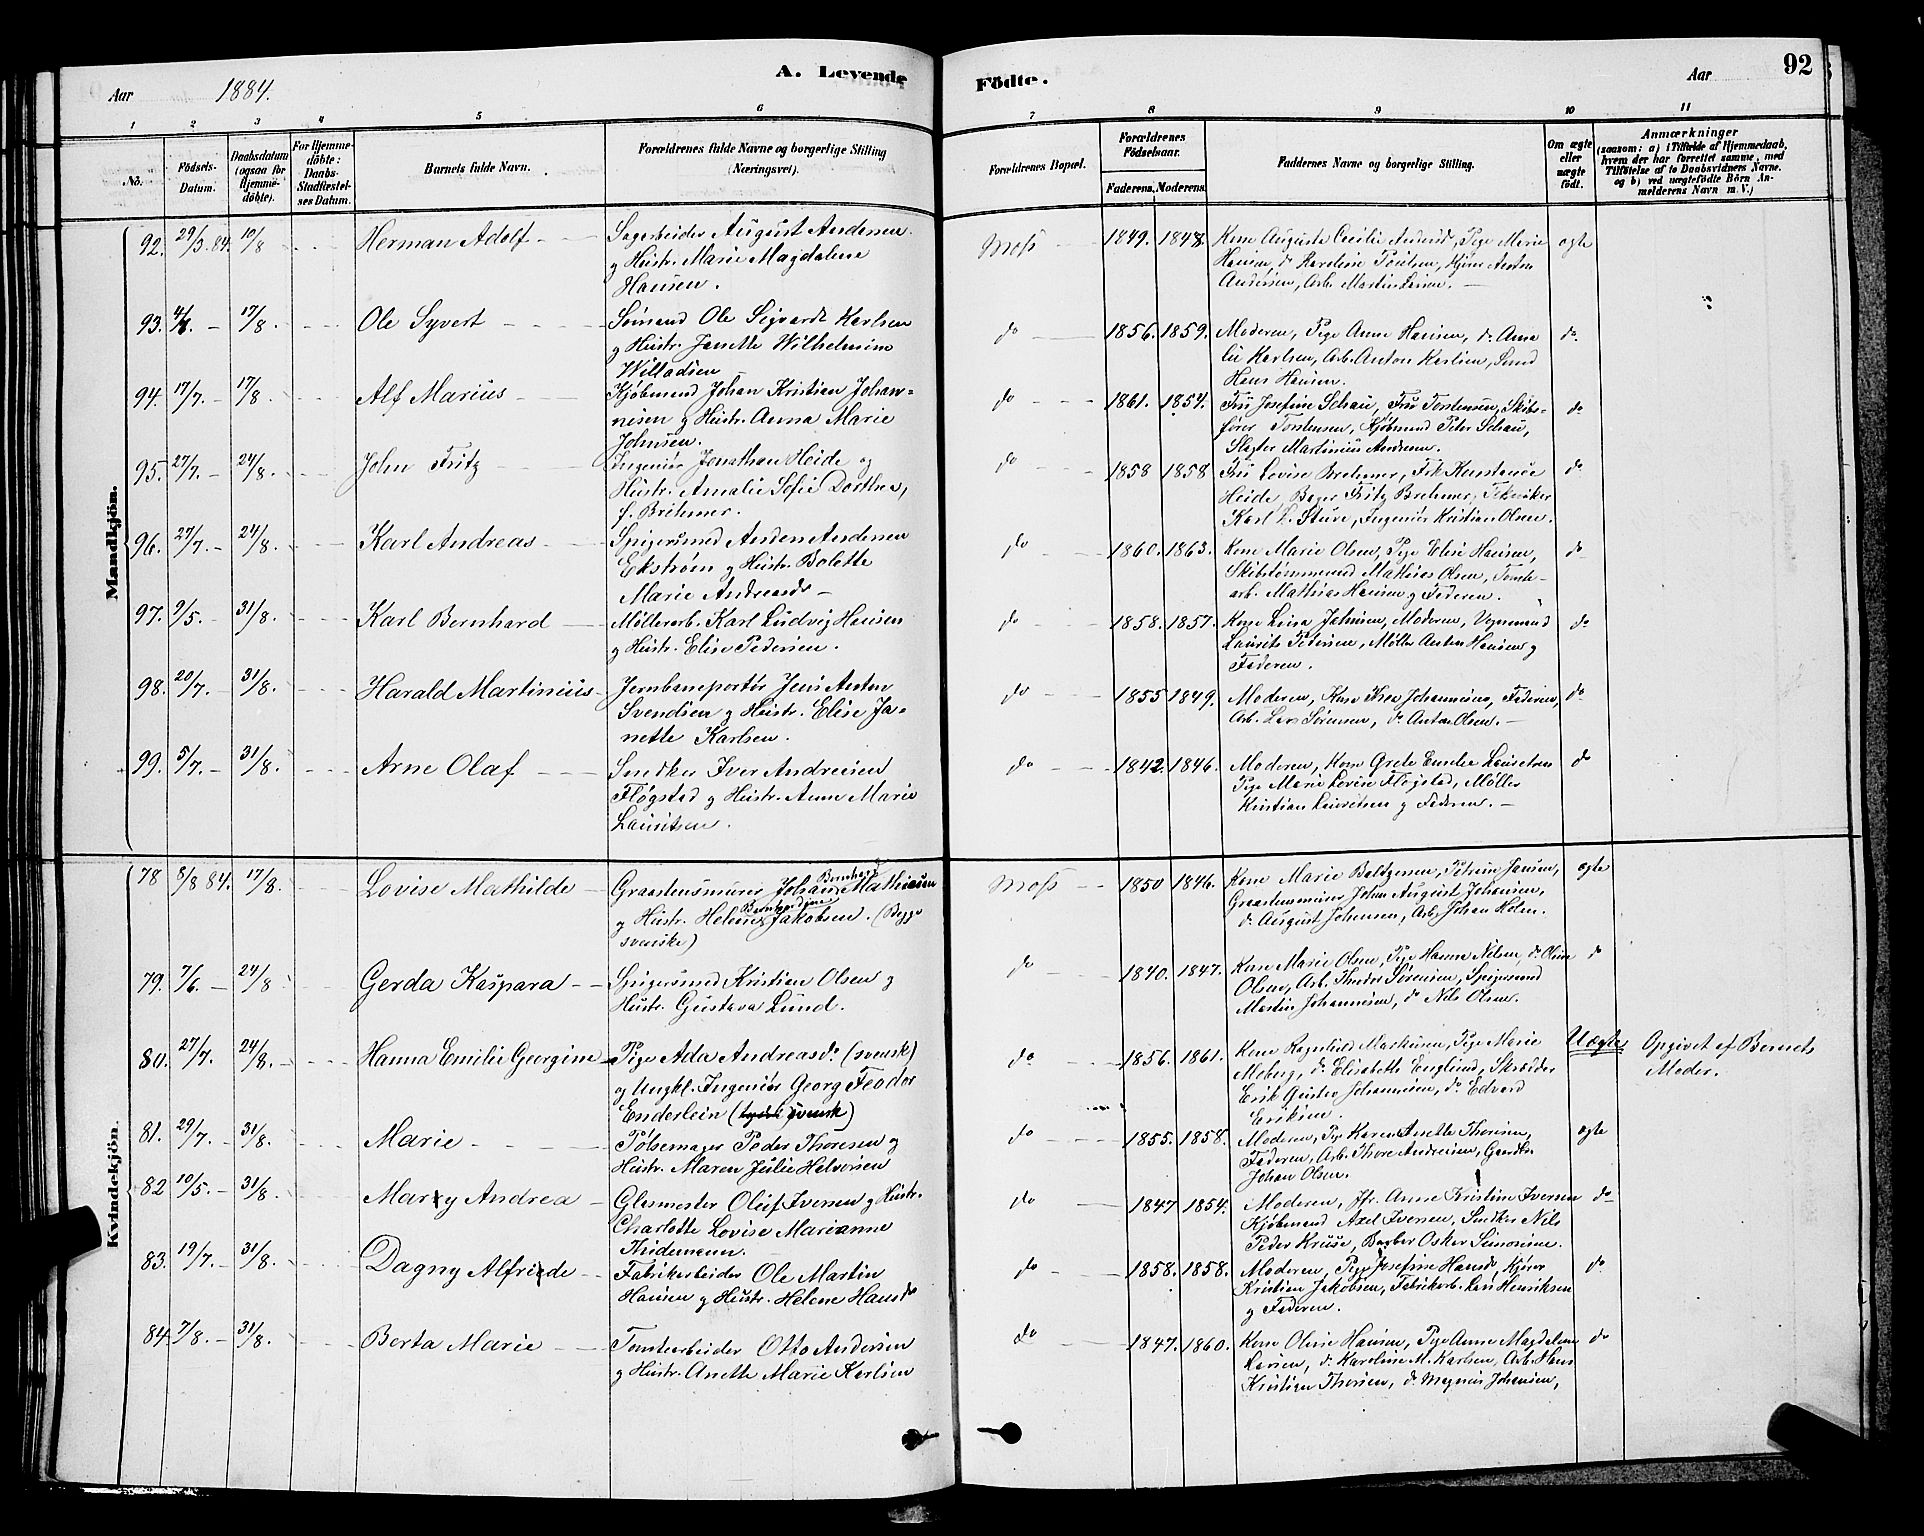 Aar 1884. A. Levende Födte. Aar 92
1 2 3 4 5 6 7 8 9 10 11
No.
Födsels-
Datum.
Daabsdatum
(ogsaa for
Hjemme-
döbte).
For Hjemme-
döbte:
Daabs-
Stadfæstel-
ses Datum.
Barnets fulde Navn.
Forældrenes fulde Navne og borgerlige Stilling
(Næringsvei).
Forældrenes Bopæl.
Forældrenes
Födselsaar.
Faderens. Moderens.
Faddernes Navne og borgerlige Stilling.
Om ægte
eller
uægte
födt.
Anmærkninger
(saasom: a) i Tilfælde af Hjemmedaab,
hvem der har forrettet samme, med
Tilföielse af to Daabsvidners Navne.
og b) ved uægtefödte Börn An-
melderens Navn m. V.)
Mandkjön.
92. 29/3.84. 10/8 Herman Adolf Sagarbeider August Andersen
g Hustr. Marie Magdalene
Hansen.
Moss 1849. 1848. Kone Auguste Cecilie Andersd, Pige Marie
Hansen, do Karoline Poulsen,
Andersen, Arb. Martin Larsen.
ægte
93. 17/8. Ole Syvert Sömand Ole Sigvardt Karlsen
g Hustr. Janette Wilhelmine
Willadsen
do 1856. 1859. Moderen, Pige Anne Hansen, do Anna
Karlsen, Arb. Anton Karlsen,
Hans Hansen.
do
94. 17/7. 17/8. Alf Marius Kjöbmand Johan Kristian Johan-
nesen g Hustr. Anna Marie
Johnsen.
do 1861. 1854. Fru Josefine Schau, Fru Torstensen, Skibs-
förer Torstensen, Kjöbmand Peter Schau,
Slagter Martinius Andersen.
do
95. 27/7. 24/8. John Fritz Ingeniör Jonathan Heide og
Hustr. Amalie Sofie Dorthea,
f. Brehmer.
do 1858 1858 Fru Lovise Brehmer, Frk Konstance
Heide, Bager Fritz Brehmer,
Karl L. Sture, Ingeniör Kristian Olsen.
do
96. 27/7. 24/8. Karl Andreas Spigersmed Anders Andersen
Ekström g Hustr. Bolette
Marie Andreasdr
do 1860. 1863. Kone Marie Olsen, Pige Elise Hansen,
Skibstömmermand Mathias Olsen, Tomte-
arb. Mathias Hansen g Faderen.
do
97. 9/5. 31/8. Karl Bernhard Möllerarb. Karl Ludvig Hansen
g Hustr. Elise Pedersen.
do 1858. 1857. Kone Lina Johnsen, Moderen, Vognmand
Laurits Pedersen, Möller Anton Hansen g
Faderen.
do
98. 20/7. 31/8. Harald Martinius Jernbaneportör Jens Anton
Svendsen g Hustr. Elise Ja-
nette Karlsen.
do 1855 1849. Moderen, Kone Johannesen, Faderen,
Arb. Lars Sörensen, do Anton Olsen.
do
99. 5/7. 31/8. Arne Olaf Snedker Iver Andreisen
Flögstad g Hustr. Anne Marie
Lauritsen.
do 1842. 1846. Moderen, Kone Grete Emilie Lauritsen
Pige Marie Lovise Flögstad, Möller
Kristian Lauritsen g Faderen.
do
Kvindekjön.
78 8/8 84. 17/8. Lovise Mathilde Graastensmurer Johan Bernhard Mathiasen
g Hustr. Helene Bernhardine Jakobsen. (Begge
svenske)
Moss 1850 1846. Kone Marie Baltzersen, Petrine Jansen,
Graastensmurer Johan August Johansen,
do August Johansen, Arb. Johan Holm.
ægte
79. 7/6. 24/8 Gerda Kaspara Spigersmed Kristian Olsen g
Hustr. Gustava Lund.
do 1840. 1847. Kone Marie Olsen, Pige Hanna Nilsen, do Oline
Olsen, Arb. Theodor Sörensen, Spigersmed
Martin Johannesen, do Nils Olsen.
do
80. 27/7. 24/8. Hanna Emilie Georgine Pige Ada Andreasdr (svensk)
og Ungkl. Ingeniör Georg Feodor
Enderlein (tysk svensk)
do 1856. 1861. Kone Ragnhild Markusen, Pige Marie
Moberg, do Elisabeth Englund, Skrædder
Erik Gustav Johannesen, do Edvard
Eriksen.
Uægte Opgivet af Barnets
Moder.
81. 29/7. 31/8. Marie Pölsemager Peder Thoresen g
Hustr. Maren Julie Halvorsen
do 1855. 1858. Moderen, Pige Karen Anette Thoresen,
Faderen, Arb. Thore Andreisen,
Johan Olsen.
ægte
82 10/5. 31/8. Mary Andrea Glasmester Oluf Iversen g Hustr.
Charlotte Lovise Marianne
Thidemann.
do 1847 1854. Moderen, Jfr. Anne Kristine Iversen
Kjöbmand Axel Iversen, Snedker Nils
Peder Kruse, Barber Oskar Simonsen.
do
83. 19/7. 31/8. Dagny Alfride Fabrikarbeider Ole Martin
Hansen g Hustr. Helene Hansdr
do 1858. 1858. Moderen, Pige Josefine Hansdr, Kjörer
Kristian Jakobsen, Fabrikarb. Lars Henriksen
g Faderen.
do
84. 7/8. 31/8. Berta Marie Tomtearbeider Otto Andersen
g Hustr. Anette Marie Karlsen
do 1847. 1860. Kone Oline Hansen, Pige Anne Magdalene
Larsen, do Karoline M. Karlsen, Arb. Hans
Kristian Thorsen, do Magnus Johansen,
do